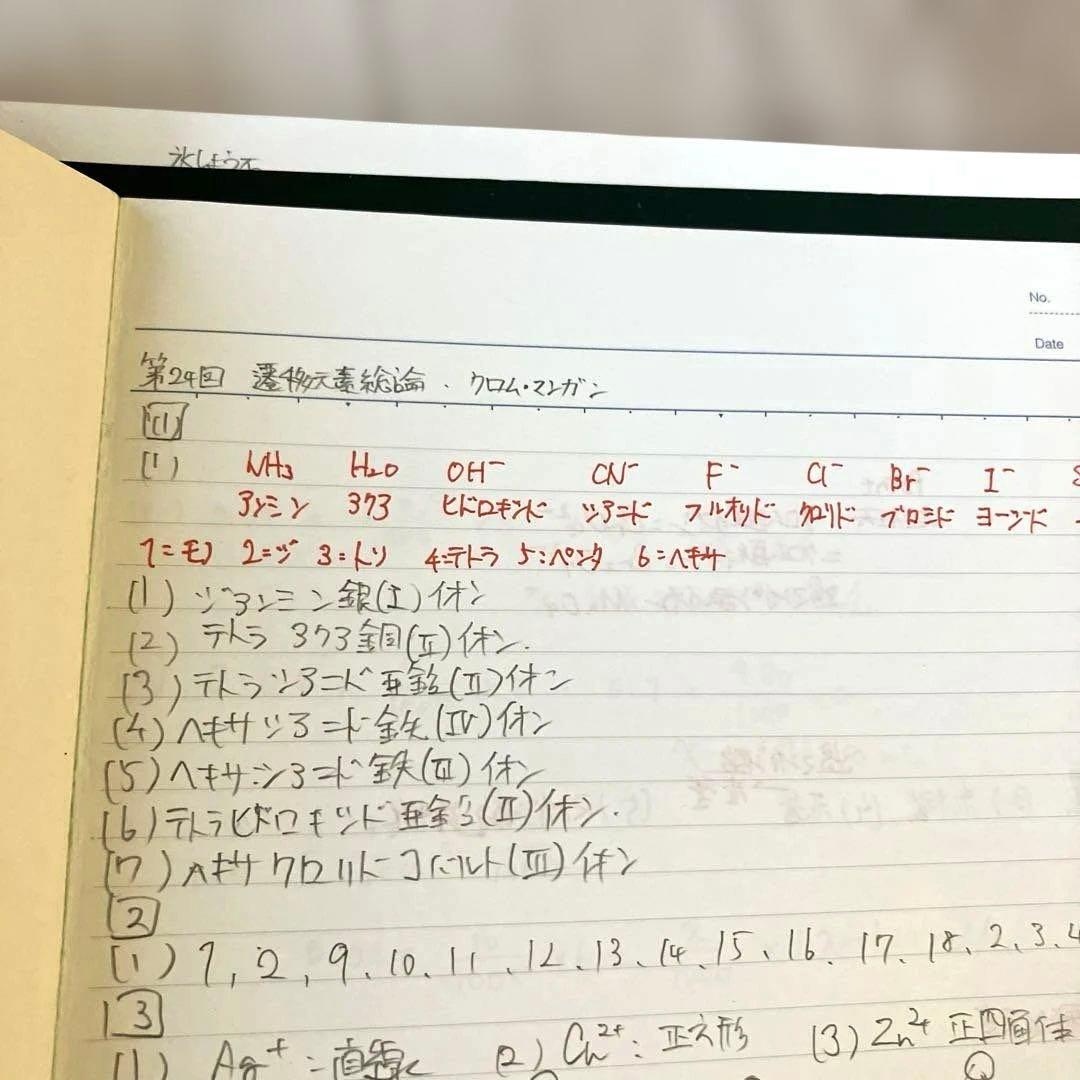 氷しょう石
No.
Date
第24回 遷移元素総論・クロム・マンガン
[1]
(1) NH₃ H₂O OH⁻ CN⁻ F⁻ Cl⁻ Br⁻ I⁻
アンミン アクア ヒドロキシド シアニド フルオリド クロリド ブロミド ヨージド
1=モノ 2=ジ 3=トリ 4=テトラ 5=ペンタ 6=ヘキサ
(1) ジアンミン銀(I)イオン
(2) テトラアクア銅(II)イオン.
(3) テトラシアニド亜鉛(II)イオン
(4) ヘキサシアニド鉄(IV)イオン
(5) ヘキサシアニド鉄(III)イオン
(6) テトラヒドロキシド亜鉛(II)イオン.
(7) ヘキサクロリドコバルト(III)イオン
[2]
(1) 1, 2, 9, 10, 11, 12, 13, 14, 15, 16, 17, 18, 2, 3, 4
[3]
(1) Ag⁺:直線 (2) Cu²⁺:正方形 (3) Zn²⁺ 正四面体